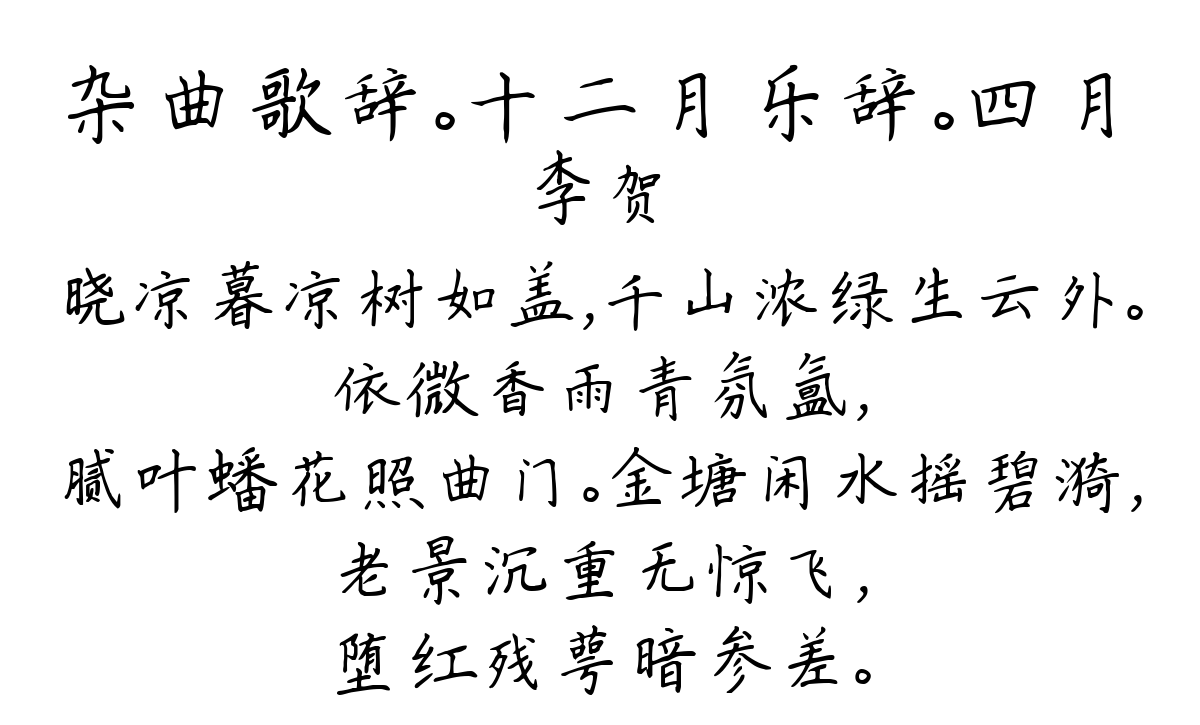 杂曲歌辞。十二月乐辞。四月
李贺
晓凉暮凉树如盖,千山浓绿生云外。
依微香雨青氛氲,
腻叶蟠花照曲门。金塘闲水摇碧漪,
老景沉重无惊飞,
堕红残萼暗参差。